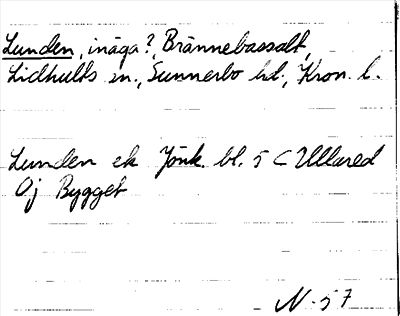 Lunden, inäga?, Brännebassalt,
Lidhults sn., Sunnerbo hd., Kron. l.
Lunden ek Jönk. bl. 5 C Ullared
Oj Bygget
N-57